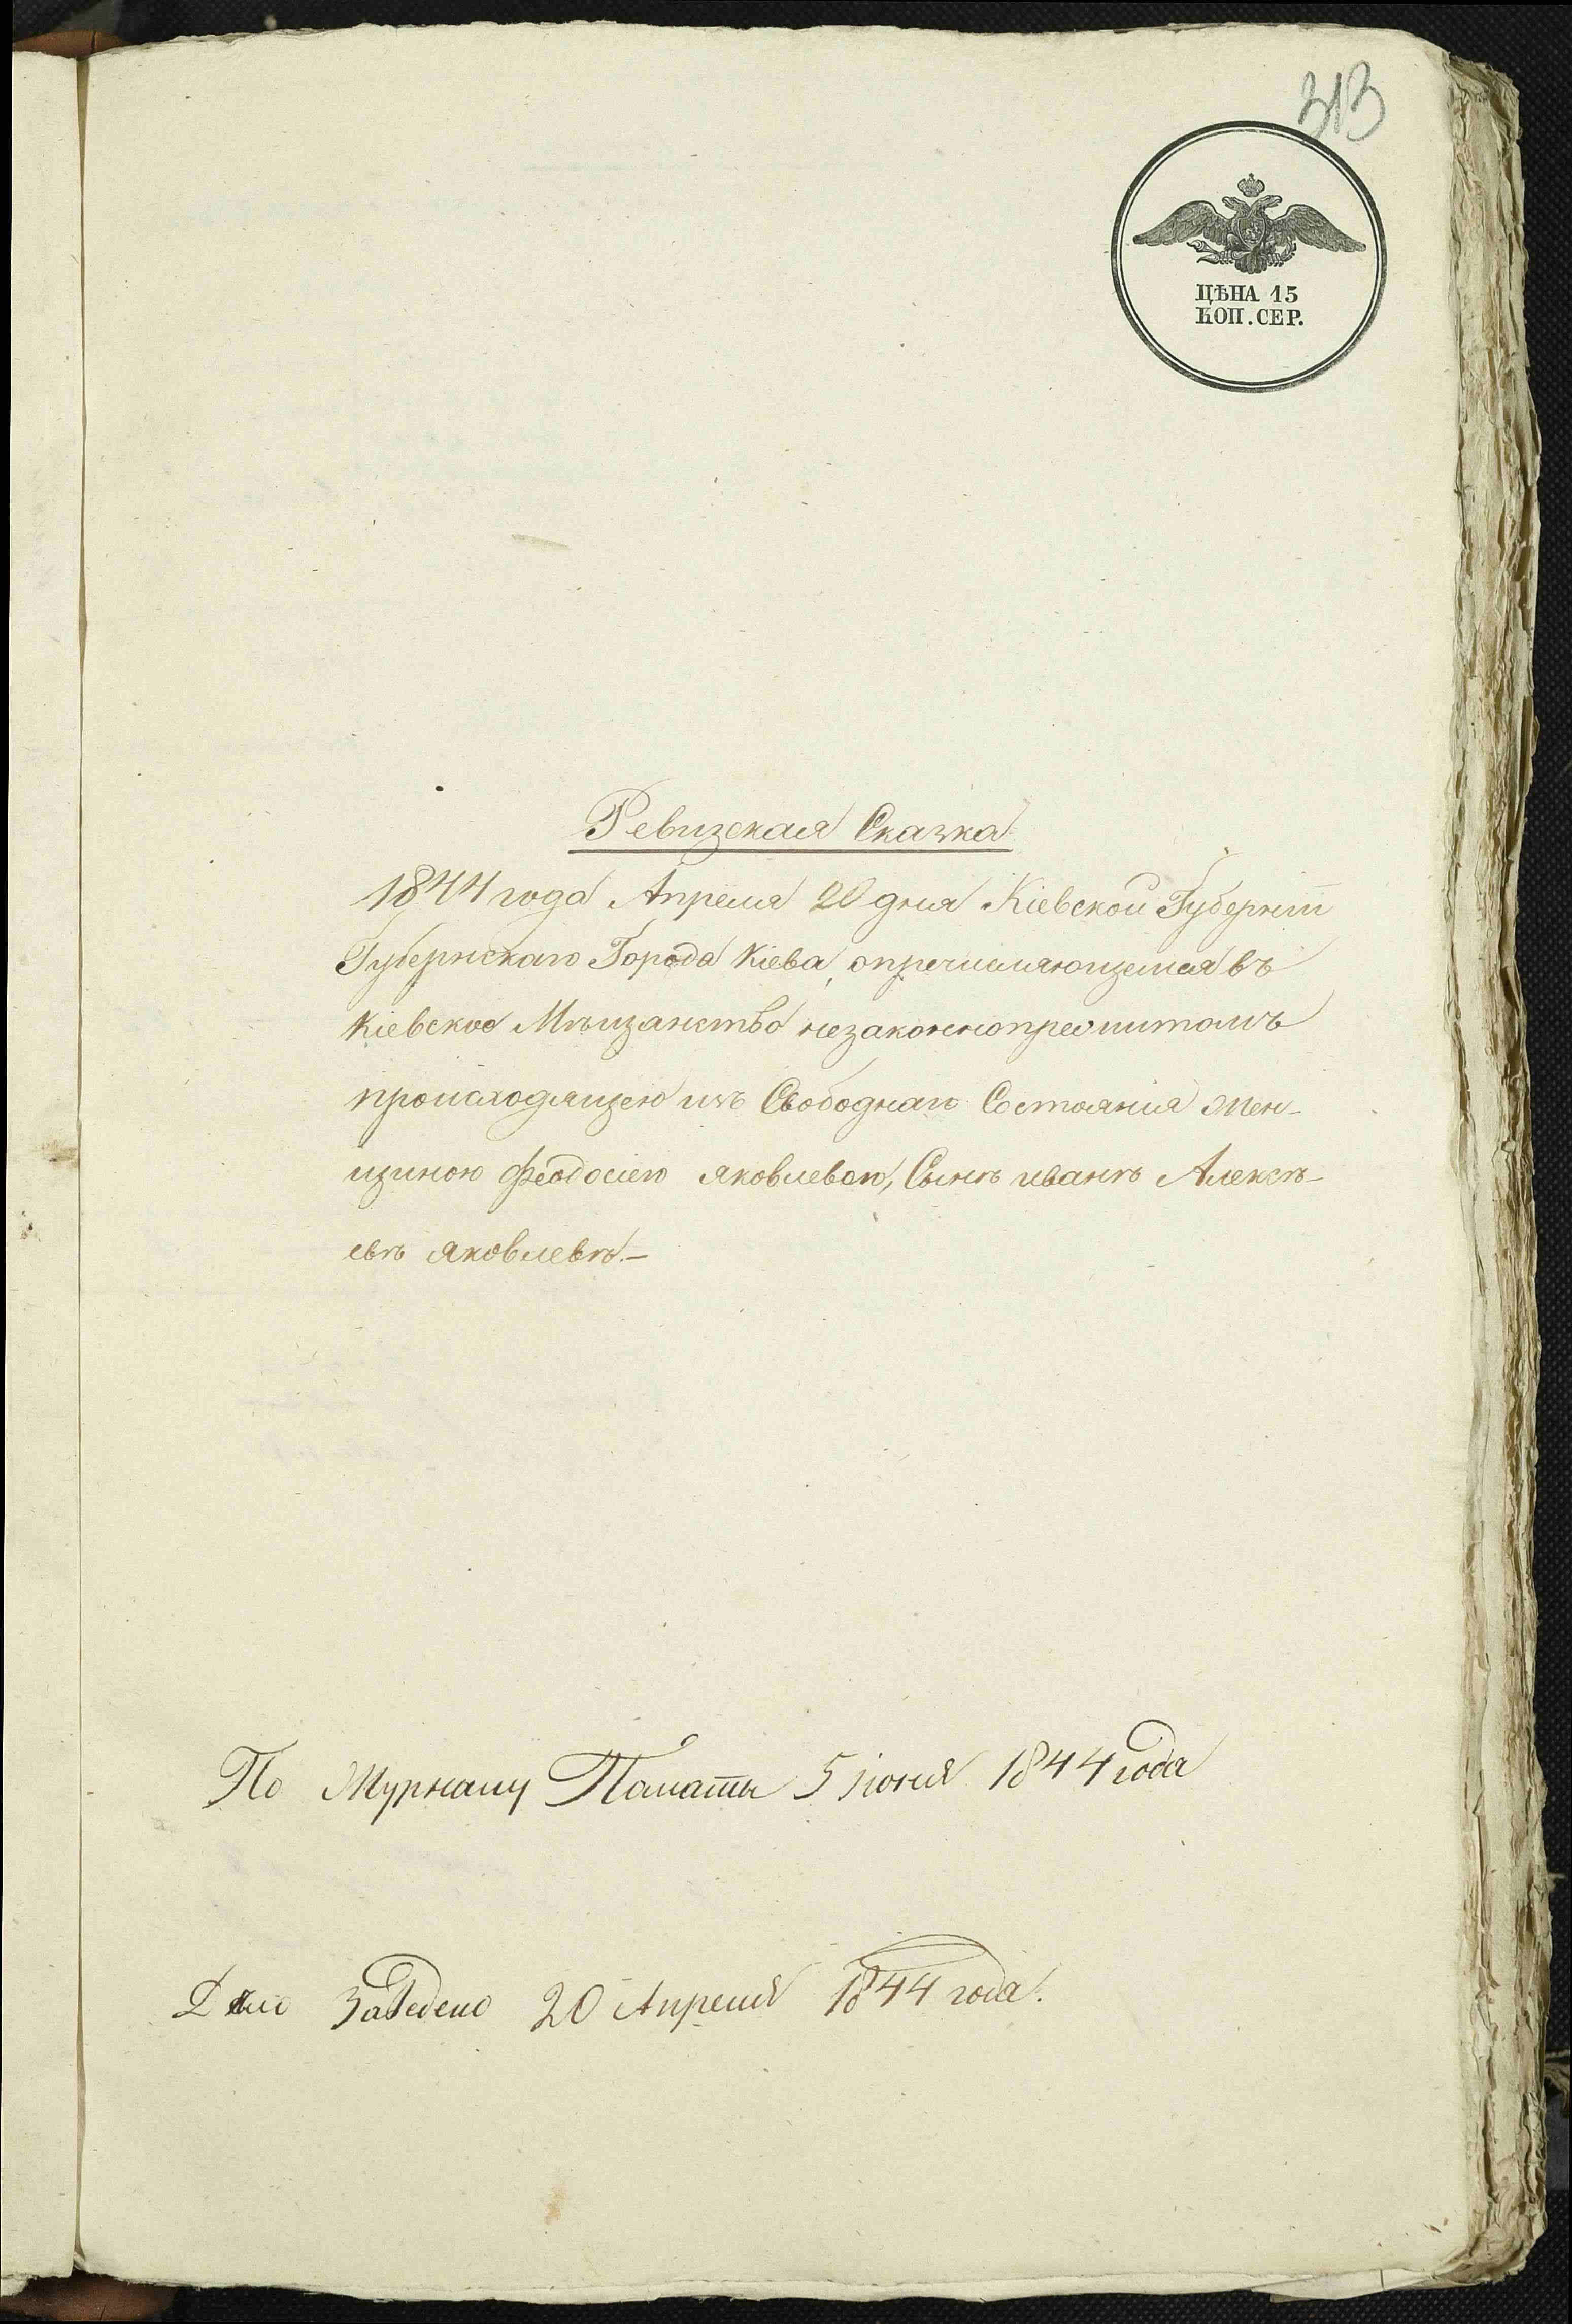 313
ЦѢНА 15
КОП. СЕР.
Ревизская Сказка
1844 года Апреля 20 дня Кіевской Губерніи
Губернскаго Города Кіева, опричисляющемся въ
Кіевское Мѣщанство незаконнопрежитомъ
происходящею изъ Свободнаго Состоянія Жен-
щиною Феодосіею Яковлевою, Сынѣ Иванѣ Алексѣ-
евѣ Яковлевѣ.-
По Журналу Палаты 5 Іюня 1844 года
Дело Заведено 20 Апреля 1844 года.